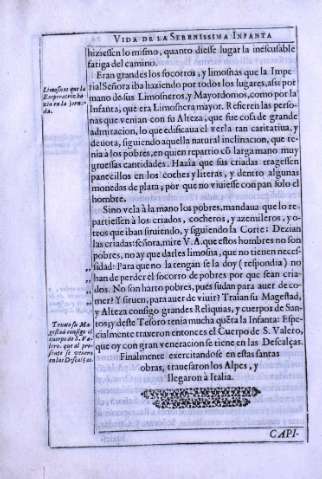 VIDA DE LA SERENISSIMA INFANTA
hiziessen lo mismo, quanto diesse lugar la inescusable
fatiga del camino.
Eran grandes los socorros, y limosnas que la Impe
rial Señora iba haziendo por todos los lugares, assi por
mano de sus Limosneros, y Mayordomos, como por la
Infanta, que era Limosnera mayor. Refieren las perso-
nas que venian con su Alteza, que fue cosa de grande
admiracion, lo que edificaua el verla tan caritatiua, y
deuota, siguiendo aquella natural inclinacion, que te-
nia à los pobres, en quien repartiò cõ larga mano muy
gruessas cantidades. Hazia que sus criadas tragessen
panecillos en los coches y literas, y dentro algunas
monedas de plata, por que no viuiesse con pan solo el
hombre.
Sino vela à la mano los pobres, mandaua que lo re-
partiessen à los criados, cocheros, y azemileros, y o-
tros que iban siruiendo, y siguiendo la Corte: Dezian
las criadas: señora, mire V. A. que estos hombres no son
pobres, no ay que darles limosna, que no tienen neces-
sidad: Para que no la tengan se la doy (respondia) no
han de perder el socorro de pobres por que sean cria-
dos. No son harto pobres, pues sudan para auer de co-
mer? Y siruen, para auer de viuir? Traian su Magestad,
y Alteza consigo grandes Reliquias, y cuerpos de San-
tos; y deste Tesoro tenia mucha quẽta la Infanta: Espe-
cialmente traveron entonces el Cuerpo de S. Valero,
que oy con gran veneracion se tiene en las Descalças.
Finalmente exercitandose en estas santas
obras, trauesaron los Alpes, y
llegaron à Italia.
CAPI-
Limosnas que la
Emperatriz ha
zia en la jorna
da.
Trauo su Ma
gestad consigo el
cuerpo de S. Va
lero, que al pre
sente se venera
en las Descalças.